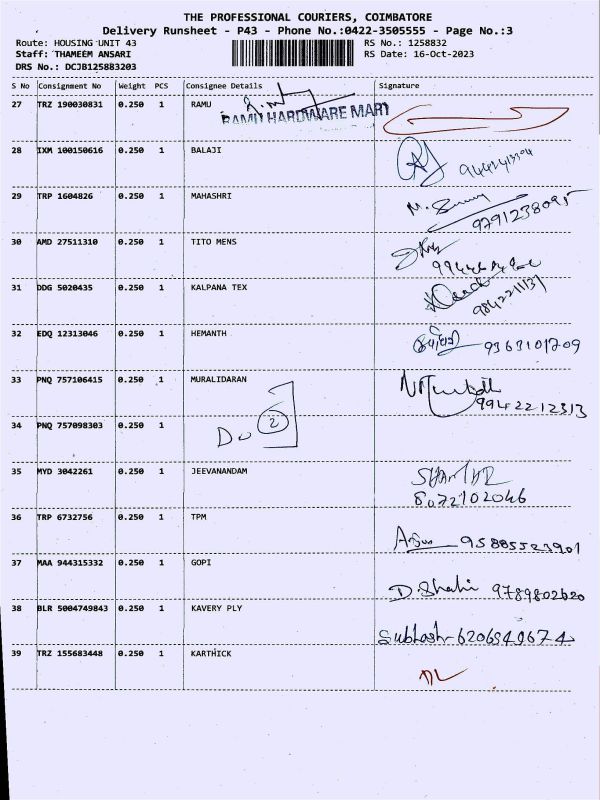 THE PROFESSIONAL COURIERS, COIMBATORE
Delivery Runsheet - P43 - Phone No.:0422-3505555 - Page No.:3
Route: HOUSING UNIT 43 RS No.: 1258832
Staff: THAMEEM ANSARI RS Date: 16-Oct-2023
DRS No.: DCJB125883203
S No Consignment No Weight PCS Consignee Details Signature
27 TRZ 190030831 0.250 1 RAMU RAMU HARDWARE MART
28 IXM 100150616 0.250 1 BALAJI
29 TRP 1604826 0.250 1 MAHASHRI 9791238095
30 AMD 27511310 0.250 1 TITO MENS
31 DDG 5020435 0.250 1 KALPANA TEX 9842211131
32 EDQ 12313046 0.250 1 HEMANTH 9363101709
33 PNQ 757106415 0.250 1 MURALIDARAN 9942212313
34 PNQ 757098303 0.250 1 2
35 MYD 3042261 0.250 1 JEEVANANDAM
8072102046
36 TRP 6732756 0.250 1 TPM 95885523901
37 MAA 944315332 0.250 1 GOPI D. Shahi 9789802620
38 BLR 5004749843 0.250 1 KAVERY PLY Subhash-6206949674
39 TRZ 155683448 0.250 1 KARTHICK